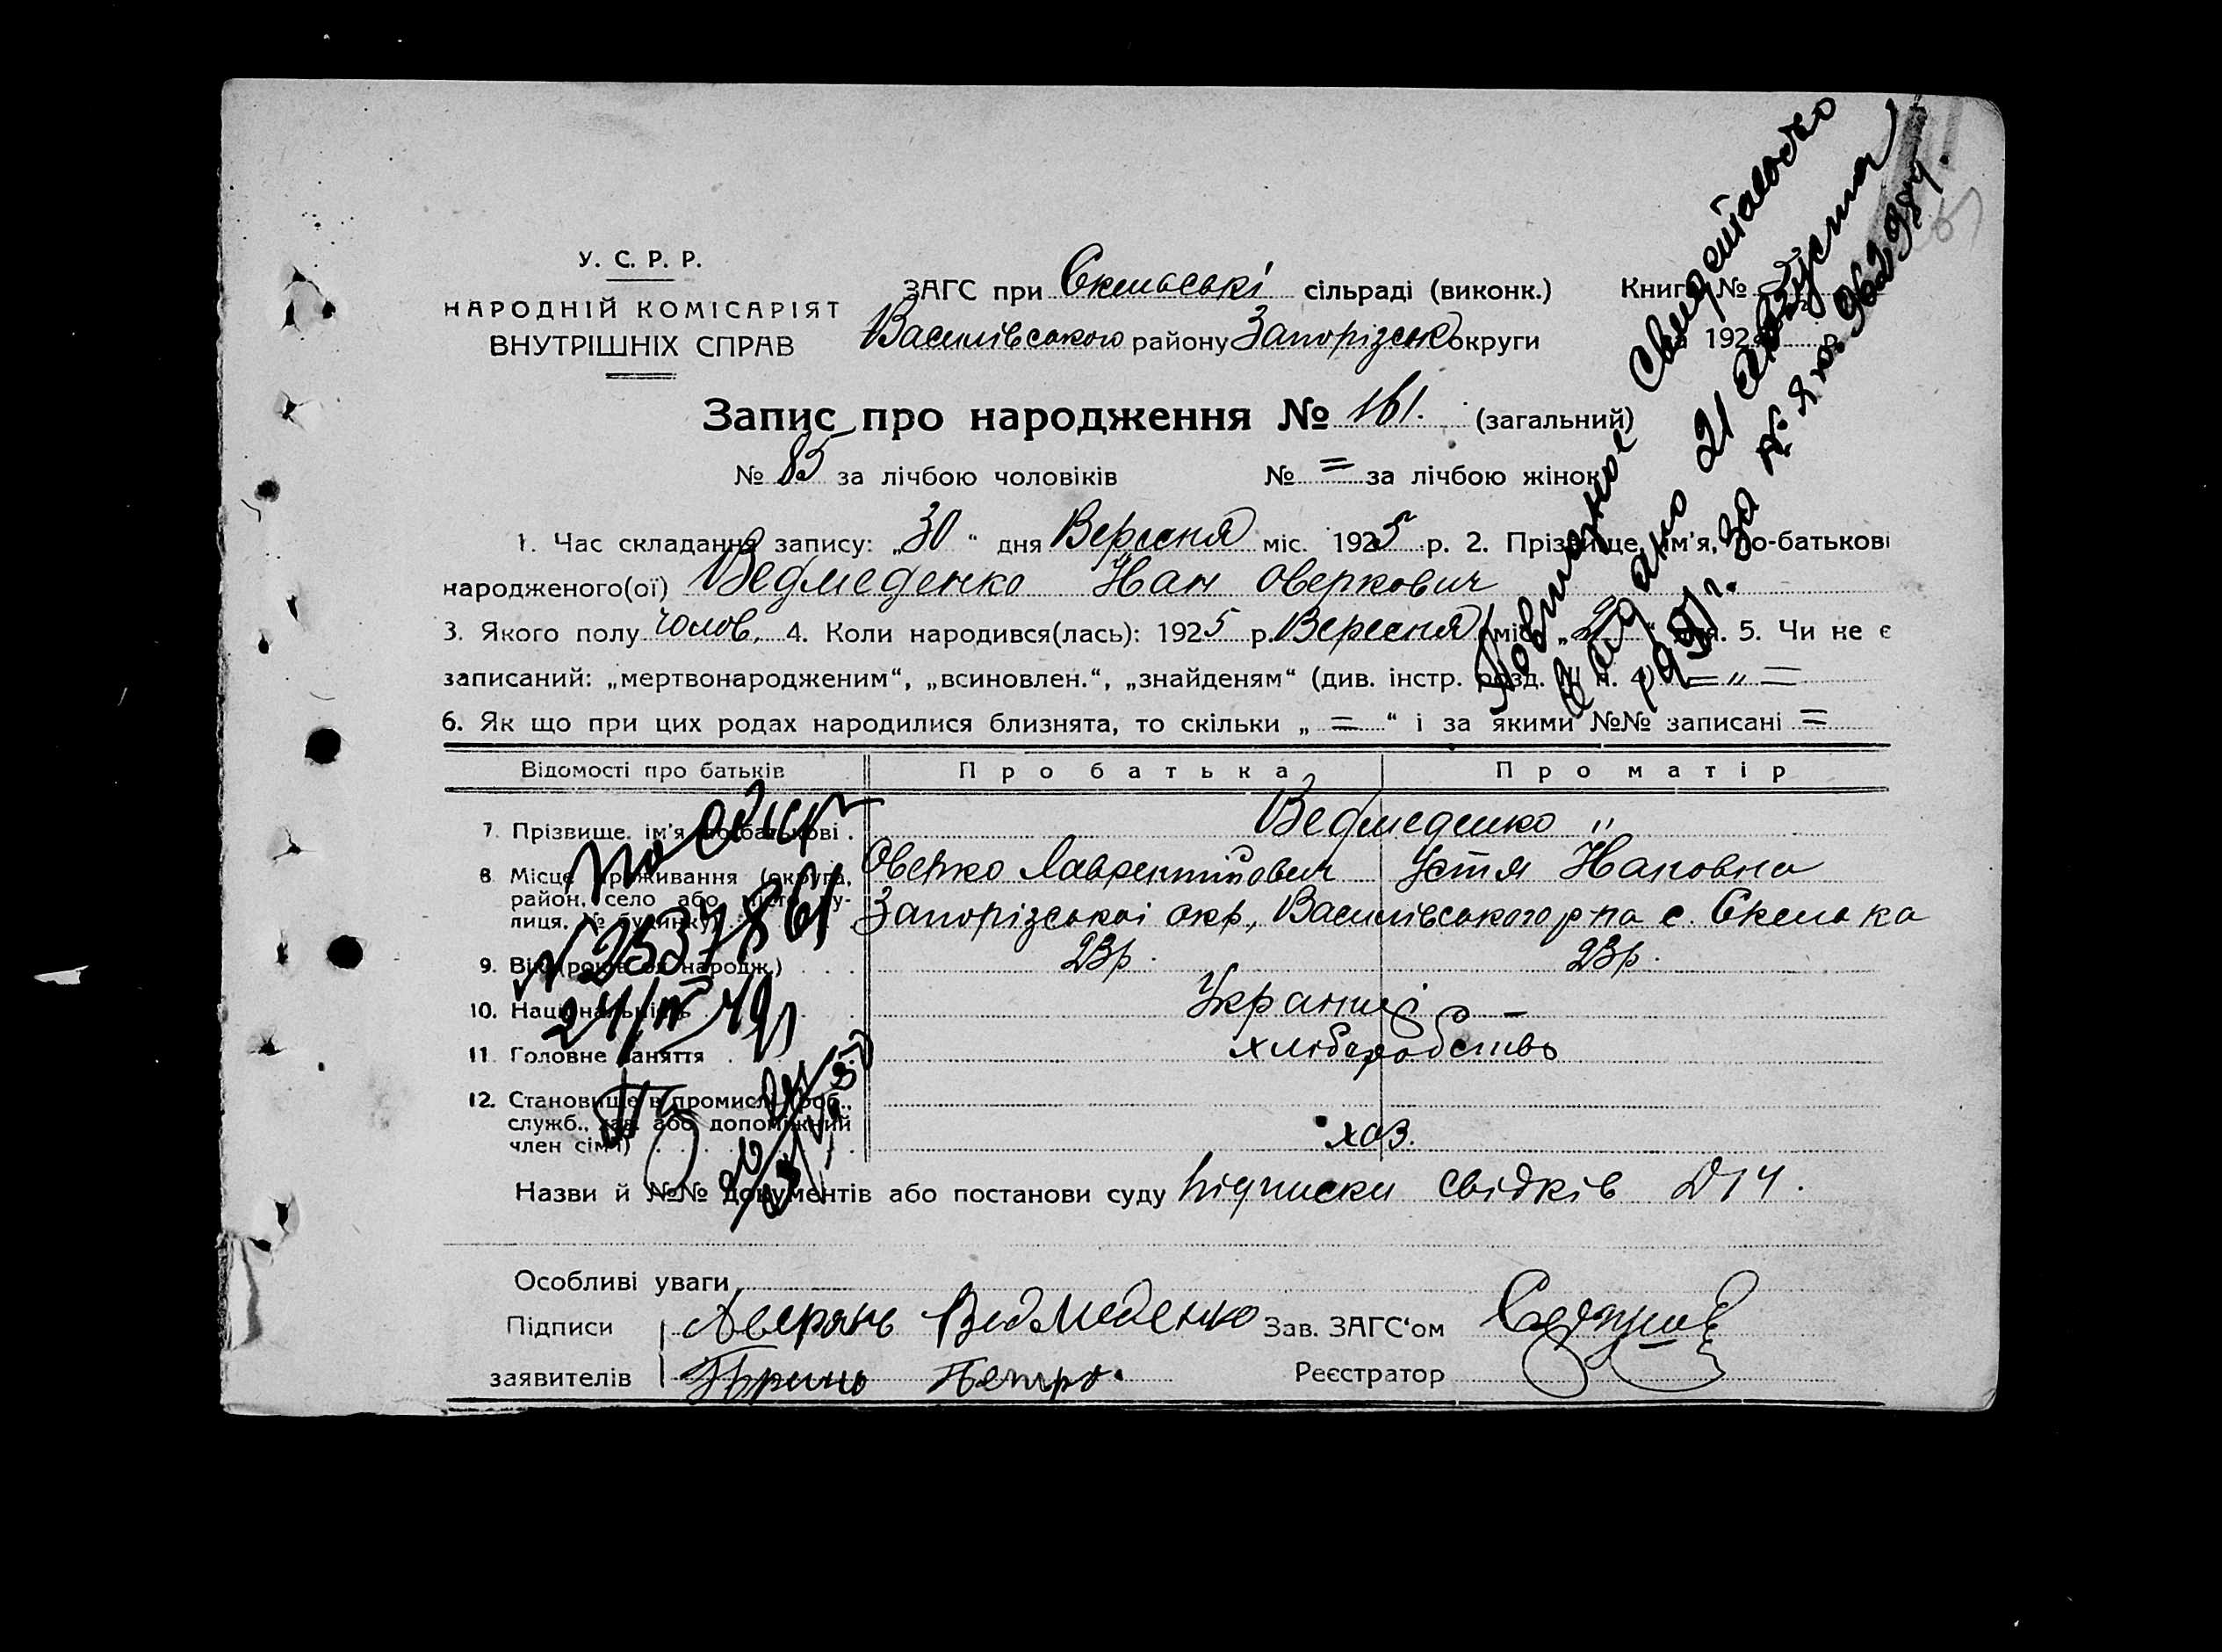 У. С. Р. Р.
НАРОДНІЙ КОМІСАРІЯТ
ВНУТРІШНІХ СПРАВ
ЗАГС при Скельські сільраді (виконк.)
Василівського району Запорізьк округи
Книга №
192 р.
Запис про народження № 161. (загальний)
№ 85 за лічбою чоловіків № = за лічбою жінок
1. Час складання запису: „30“ дня Вересня міс. 1925 р. 2. Прізвище, ім'я, по-батькові
народженого(ої) Ведмеденко Іван Оверкович
3. Якого полу чолов. 4. Коли народився(лась): 1925 р. Вересня міс. „ “ дня. 5. Чи не є
записаний: „мертвонародженим“, „всиновлен.“, „знайденям“ (див. інстр. розд. п. 4) = „ =
6. Як що при цих родах народилися близнята, то скільки „ = “ і за якими №№ записані =
Повторное свидетельство
выдано 21 августа
1951 г. за №
Відомості про батьків
Про батька
Про матір
7. Прізвище, ім'я по-батькові .
Ведмеденко "
8. Місце проживання (округа, район, село або місто, вулиця, № будинку)
Оверко Лаврентійович Устя Івановна
Запорізської окр., Василівського р-на с. Скелька
9. Вік (рок народж.) . . .
23р. 23р.
10. Національність
Українці –
11. Головне заняття .
хліборобство
12. Становище в промислі (роб., служб., хаз. або допоміжний член сім'ї)
хаз.
№ 2537861
Назви й №№ документів або постанови суду Підписки свідків Д 14.
Особливі уваги
Підписи
заявителів
Аверянь Ведмеденко
Петро.
Зав. ЗАГС'ом
Реєстратор